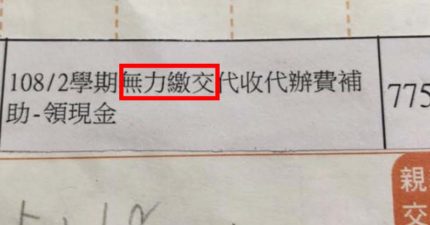 108/2學期無力繳交代收代辦費補
助-領現金
775
親
交